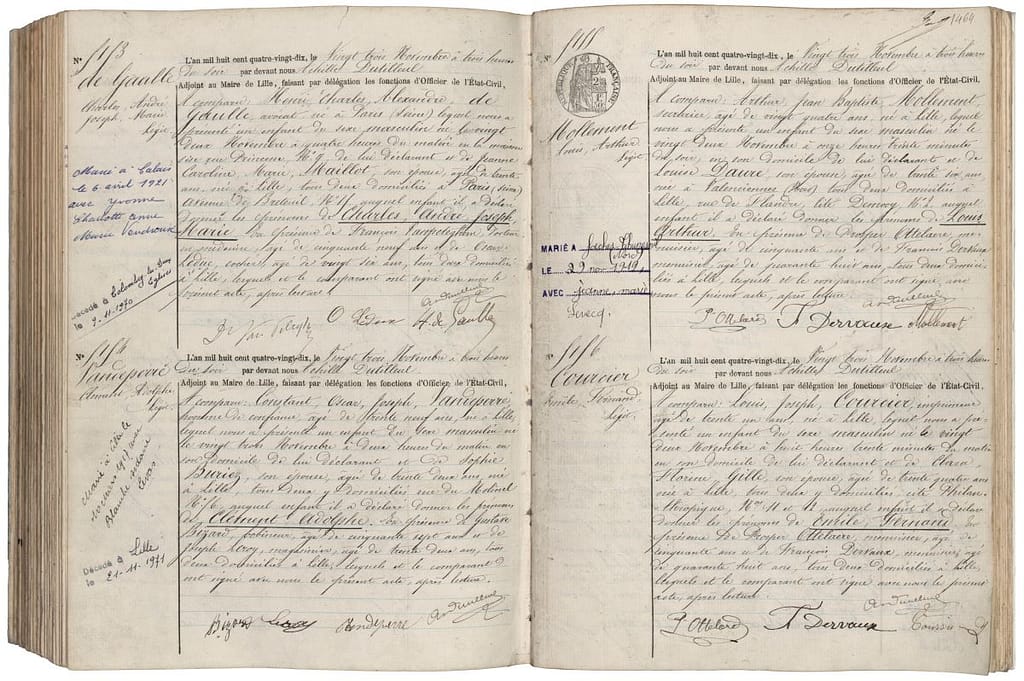 1464
N° 5153
de Gaulle
Charles, André
Joseph, Marie
Légit
Marié à Calais
le 6 avril 1921
avec Yvonne
Charlotte Anne
Marie Vendroux
Décédé à Colombey les Deux
Eglises
le 9-11-1970
L'an mil huit cent quatre-vingt-dix, le Vingt trois Novembre à trois heures
du soir par devant nous Achille Dutilleul
Adjoint au Maire de Lille, faisant par délégation les fonctions d'Officier de l'État-Civil,
A comparu: Henri, Charles, Alexandre, de
Gaulle, avocat né à Paris (Seine) lequel nous a
présenté un enfant de sexe masculin né le vingt
deux Novembre à quatre heures du matin en la maison
sise rue Princesse, N° 9, de lui déclarant et de Jeanne
Caroline, Marie, Maillot, son épouse, agée de trente
ans, née à Lille, tous deux domiciliés à Paris (Seine)
avenue de Breteuil, N° auquel enfant il a déclaré
donner les prénoms de Charles, André, Joseph,
Marie. En présence de François
en médecine, agé de cinquante neuf ans et de Oscar
Ledoux, cocher, agé de vingt six ans, tous deux domiciliés
à Lille, lesquels et le comparant ont signé avec nous le
présent acte, après lecture.
O Ledoux
H. de Gaulle
N° 5154
Vandeperre
Clément Adolphe
Légit
Marié à Lille le
1919 avec
Blanche
Décédé à Lille
le 21-11-1971
L'an mil huit cent quatre-vingt-dix, le Vingt trois Novembre à trois heures
du soir par devant nous Achille Dutilleul
Adjoint au Maire de Lille, faisant par délégation les fonctions d'Officier de l'État-Civil,
A comparu: Constant, Oscar, Joseph, Vandeperre,
homme de confiance, agé de trente neuf ans, né à Lille,
lequel nous a présenté un enfant du sexe masculin né
le vingt trois Novembre à deux heures du matin en
son domicile de lui déclarant et de Sophie
son épouse, agée de trente deux ans, née
à Lille, tous deux y domiciliés rue du Molinel
N° 76, auquel enfant il a déclaré donner les prénoms
de Clément Adolphe. En présence de Gustave
Bizard, agé de cinquante sept ans et de
Joseph Leroy, magasinier, agé de trente deux ans, tous
deux domiciliés à Lille, lesquels et le comparant
ont signé avec nous le présent acte, après lecture.
Bizard Leroy Vandeperre
N° 5155
RÉPUBLIQUE FRANÇAISE
Mollement
Louis, Arthur
Légit
MARIÉ A (Nord)
LE 29 nov 1919
AVEC Jeanne, Marie
Levecq
L'an mil huit cent quatre-vingt-dix, le Vingt trois Novembre à trois heures
du soir par devant nous Achille Dutilleul
Adjoint au Maire de Lille, faisant par délégation les fonctions d'Officier de l'État-Civil,
A comparu: Arthur, Jean Baptiste, Mollement,
agé de vingt quatre ans, né à Lille, lequel
nous a présenté un enfant du sexe masculin né le
vingt deux Novembre à onze heures trente minutes
du soir, en son domicile de lui déclarant et de
Louise Daure, son épouse, agée de trente six ans,
née à Valenciennes (Nord) tous deux domiciliés à
Lille, rue de Flandre, cité N° 2, auquel
enfant il a déclaré donner les prénoms de Louis
Arthur. En présence de Prosper Ottelaere,
agé de cinquante ans et de François Dervaux
menuisier, agé de quarante huit ans, tous deux domici-
liés à Lille, lesquels et le comparant ont signé avec
nous le présent acte, après lecture.
P. Ottelaere F. Dervaux Mollement
N° 5156
Courcier
Emile, Fernand
Légit
L'an mil huit cent quatre-vingt-dix, le Vingt trois Novembre à trois heures
du soir par devant nous Achille Dutilleul
Adjoint au Maire de Lille, faisant par délégation les fonctions d'Officier de l'État-Civil,
A comparu: Louis, Joseph, Courcier, imprimeur
agé de trente un ans, né à Lille, lequel nous a pré-
senté un enfant du sexe masculin né le vingt
deux Novembre à huit heures trente minutes du matin
en son domicile de lui déclarant et de Clara
Florine Gille, son épouse, agée de trente quatre ans
née à Lille, tous deux y domiciliés cité Philan-
thropique, N° 11 auquel enfant il a déclaré
donner les prénoms de Emile Fernand. En
présence de Prosper Ottelaere, menuisier, agé de
cinquante ans et de François Dervaux, menuisier, agé
de quarante huit ans, tous deux domiciliés à Lille,
lesquels et le comparant ont signé avec nous le présent
acte, après lecture.
P. Ottelaere F. Dervaux